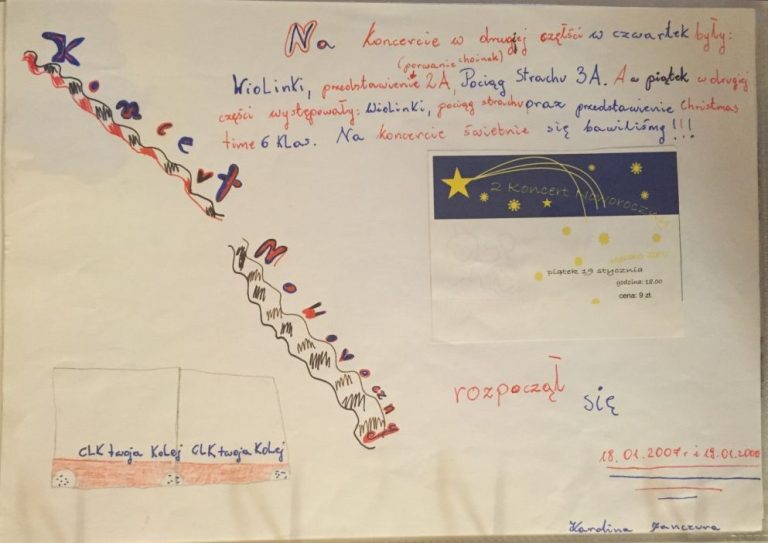 Na Koncercie w drugiej częłści w czwartek były:
(porwanie choinek)
Wiolinki, przedstawienie 2A, Pociąg Strachu 3A. A w piątek w drugiej
części występowały: Wiolinki, pociąg strachu oraz przedstawienie Christmas
time 6 klas. Na koncercie świetnie się bawiliśmy!!!
Koncert
Noworoczny
2 Koncert Noworoczny
piątek 19 stycznia
godzina: 18.00
cena: 9 zł
rozpoczął
się
CLK twoja Kolej CLK twoja Kolej
18.01.2007r i 19.01.200
Karolina